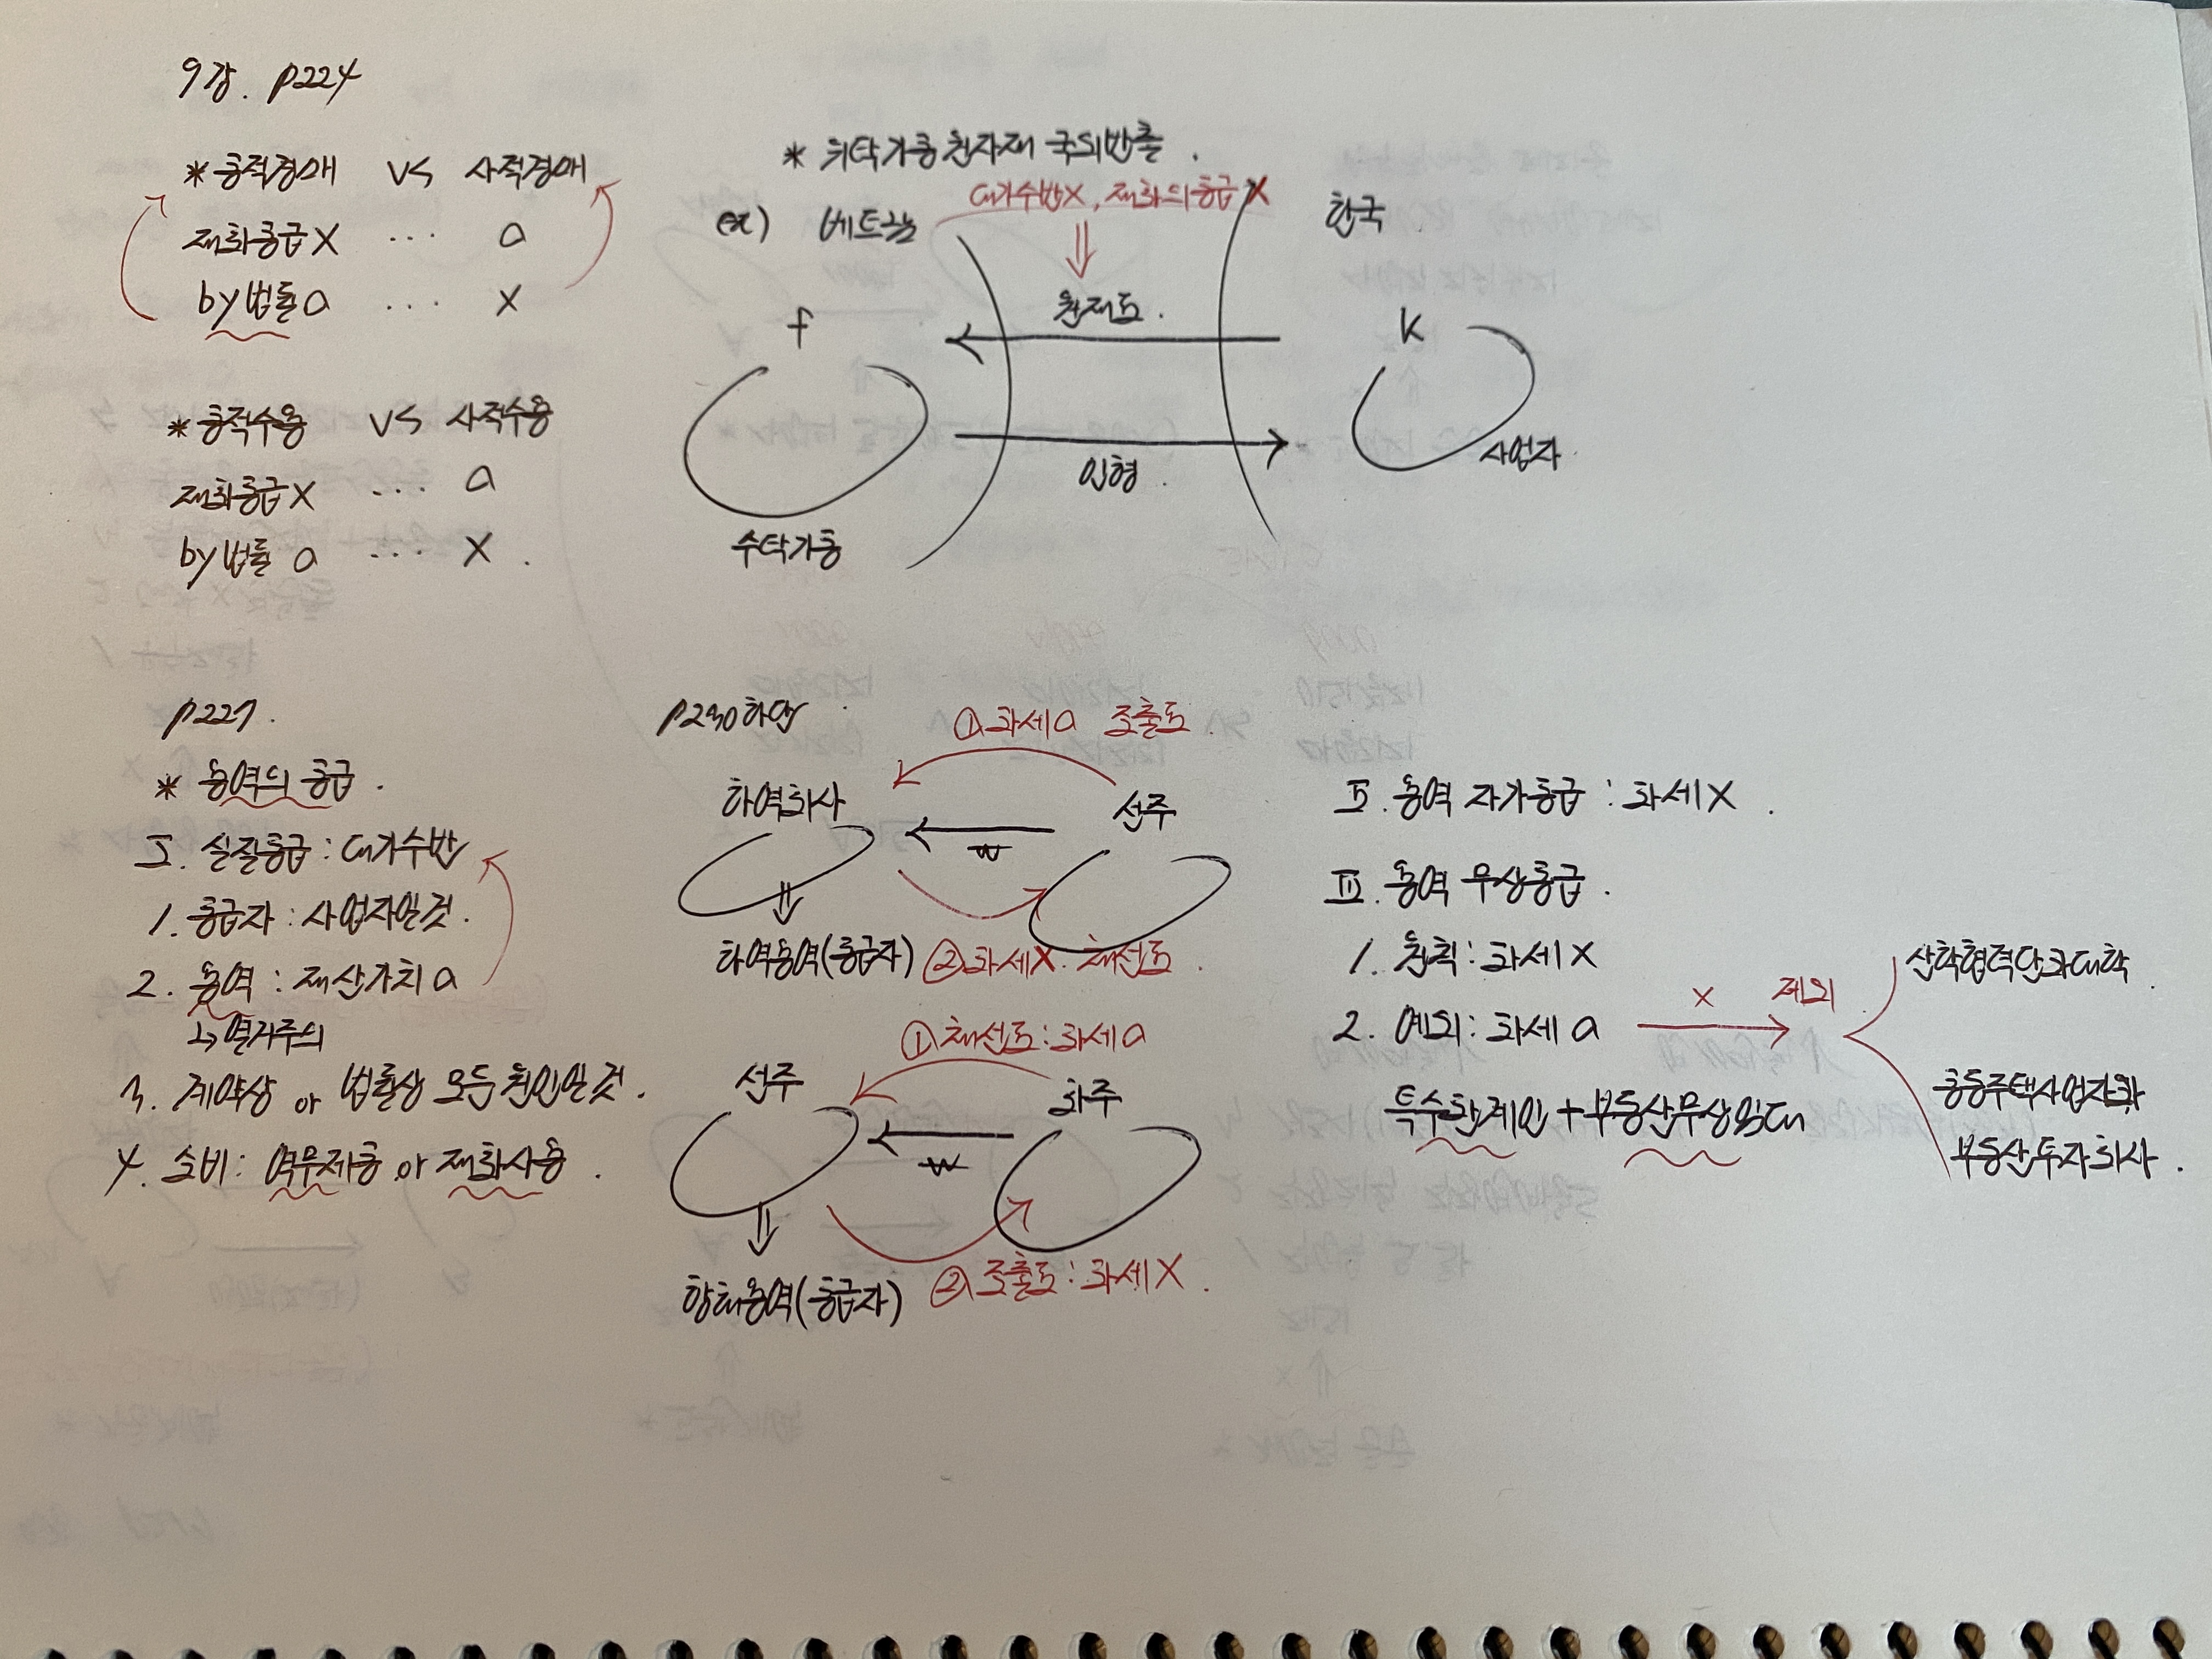 9강. P224
* 공적경매 vs 사적경매
재화공급X ... O
by법률O ... X
* 공적수용 vs 사적수용
재화공급X ... O
by법률O ... X.
* 위탁가공원자재 국외반출.
대가수반X, 재화의공급X
ex) 베트남
한국
f
원재료.
K
인형.
사업자
수탁가공
P227.
* 용역의 공급.
I. 실질공급: 대가수반
1. 공급자: 사업자일것.
2. 용역: 재산가치O
↳열거주의
3. 계약상 or 법률상 모든 원인일것.
4. 소비: 역무제공 or 재화사용.
P230하단
①과세O 조출료.
하역회사
선주
₩
하역용역(공급자)
②과세X. 체선료.
①체선료: 과세O
선주
화주
₩
항해용역(공급자)
②조출료: 과세X.
II. 용역 자가공급: 과세X.
III. 용역 무상공급.
1. 원칙: 과세X
2. 예외: 과세O
X 제외
특수관계인 + 부동산무상임대
산학협력단과대학.
공동주택사업자와
부동산투자회사.